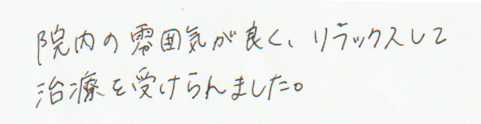 院内の雰囲気が良く、リラックスして
治療を受けられました。